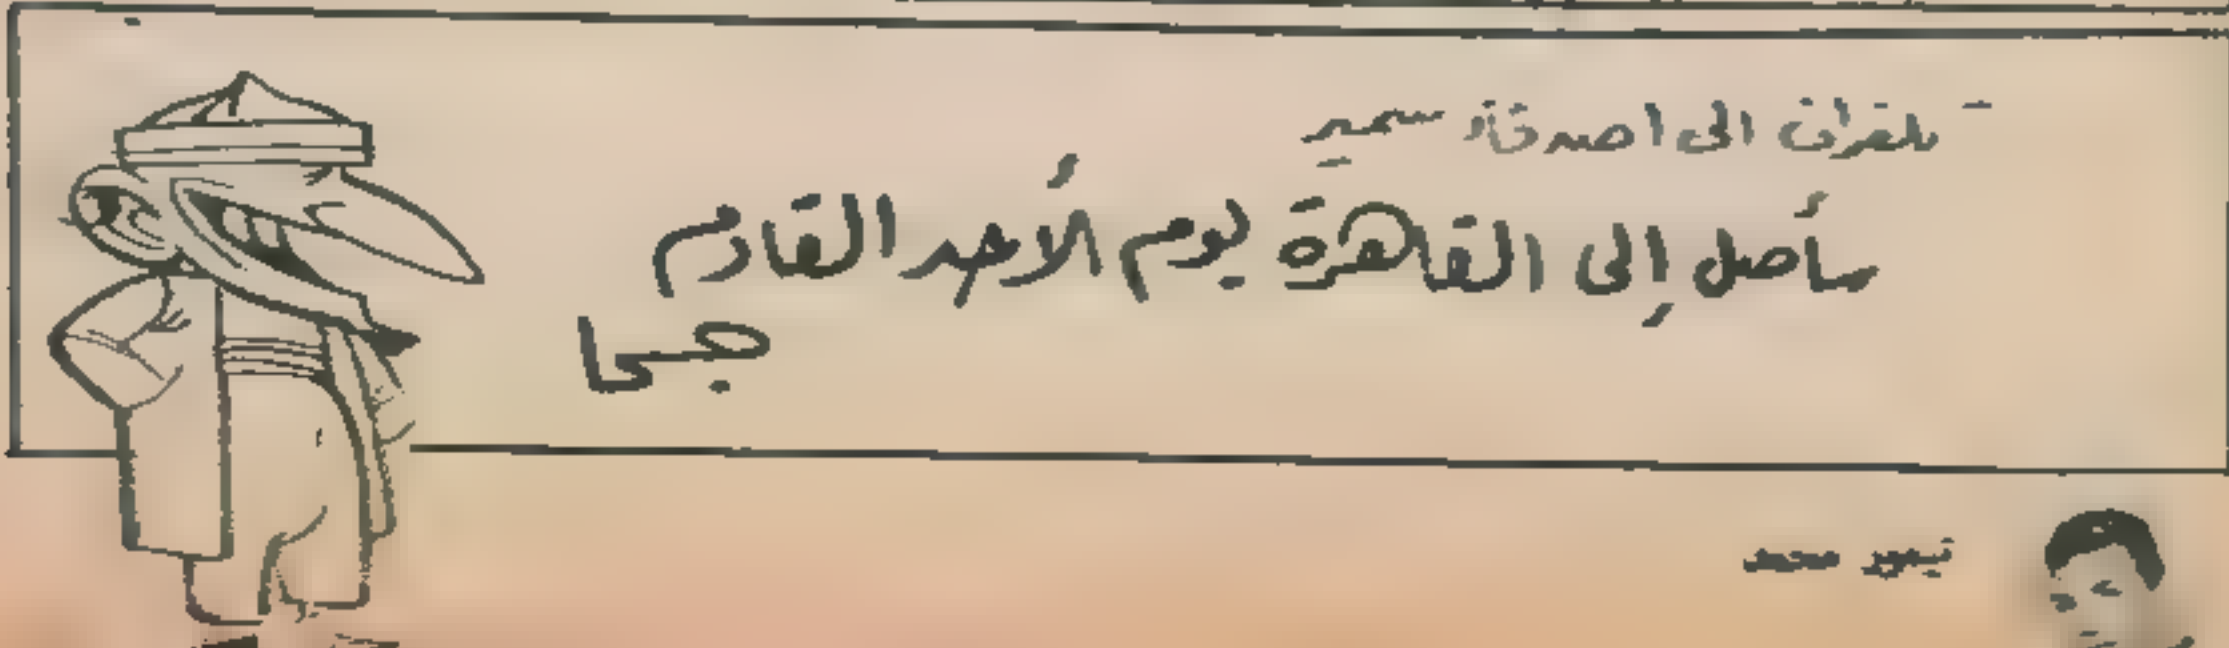 تلغراف الى أصدقاء سمير
سأصل إلى القاهرة يوم الأحد القادم
جحا
تيمور محمد